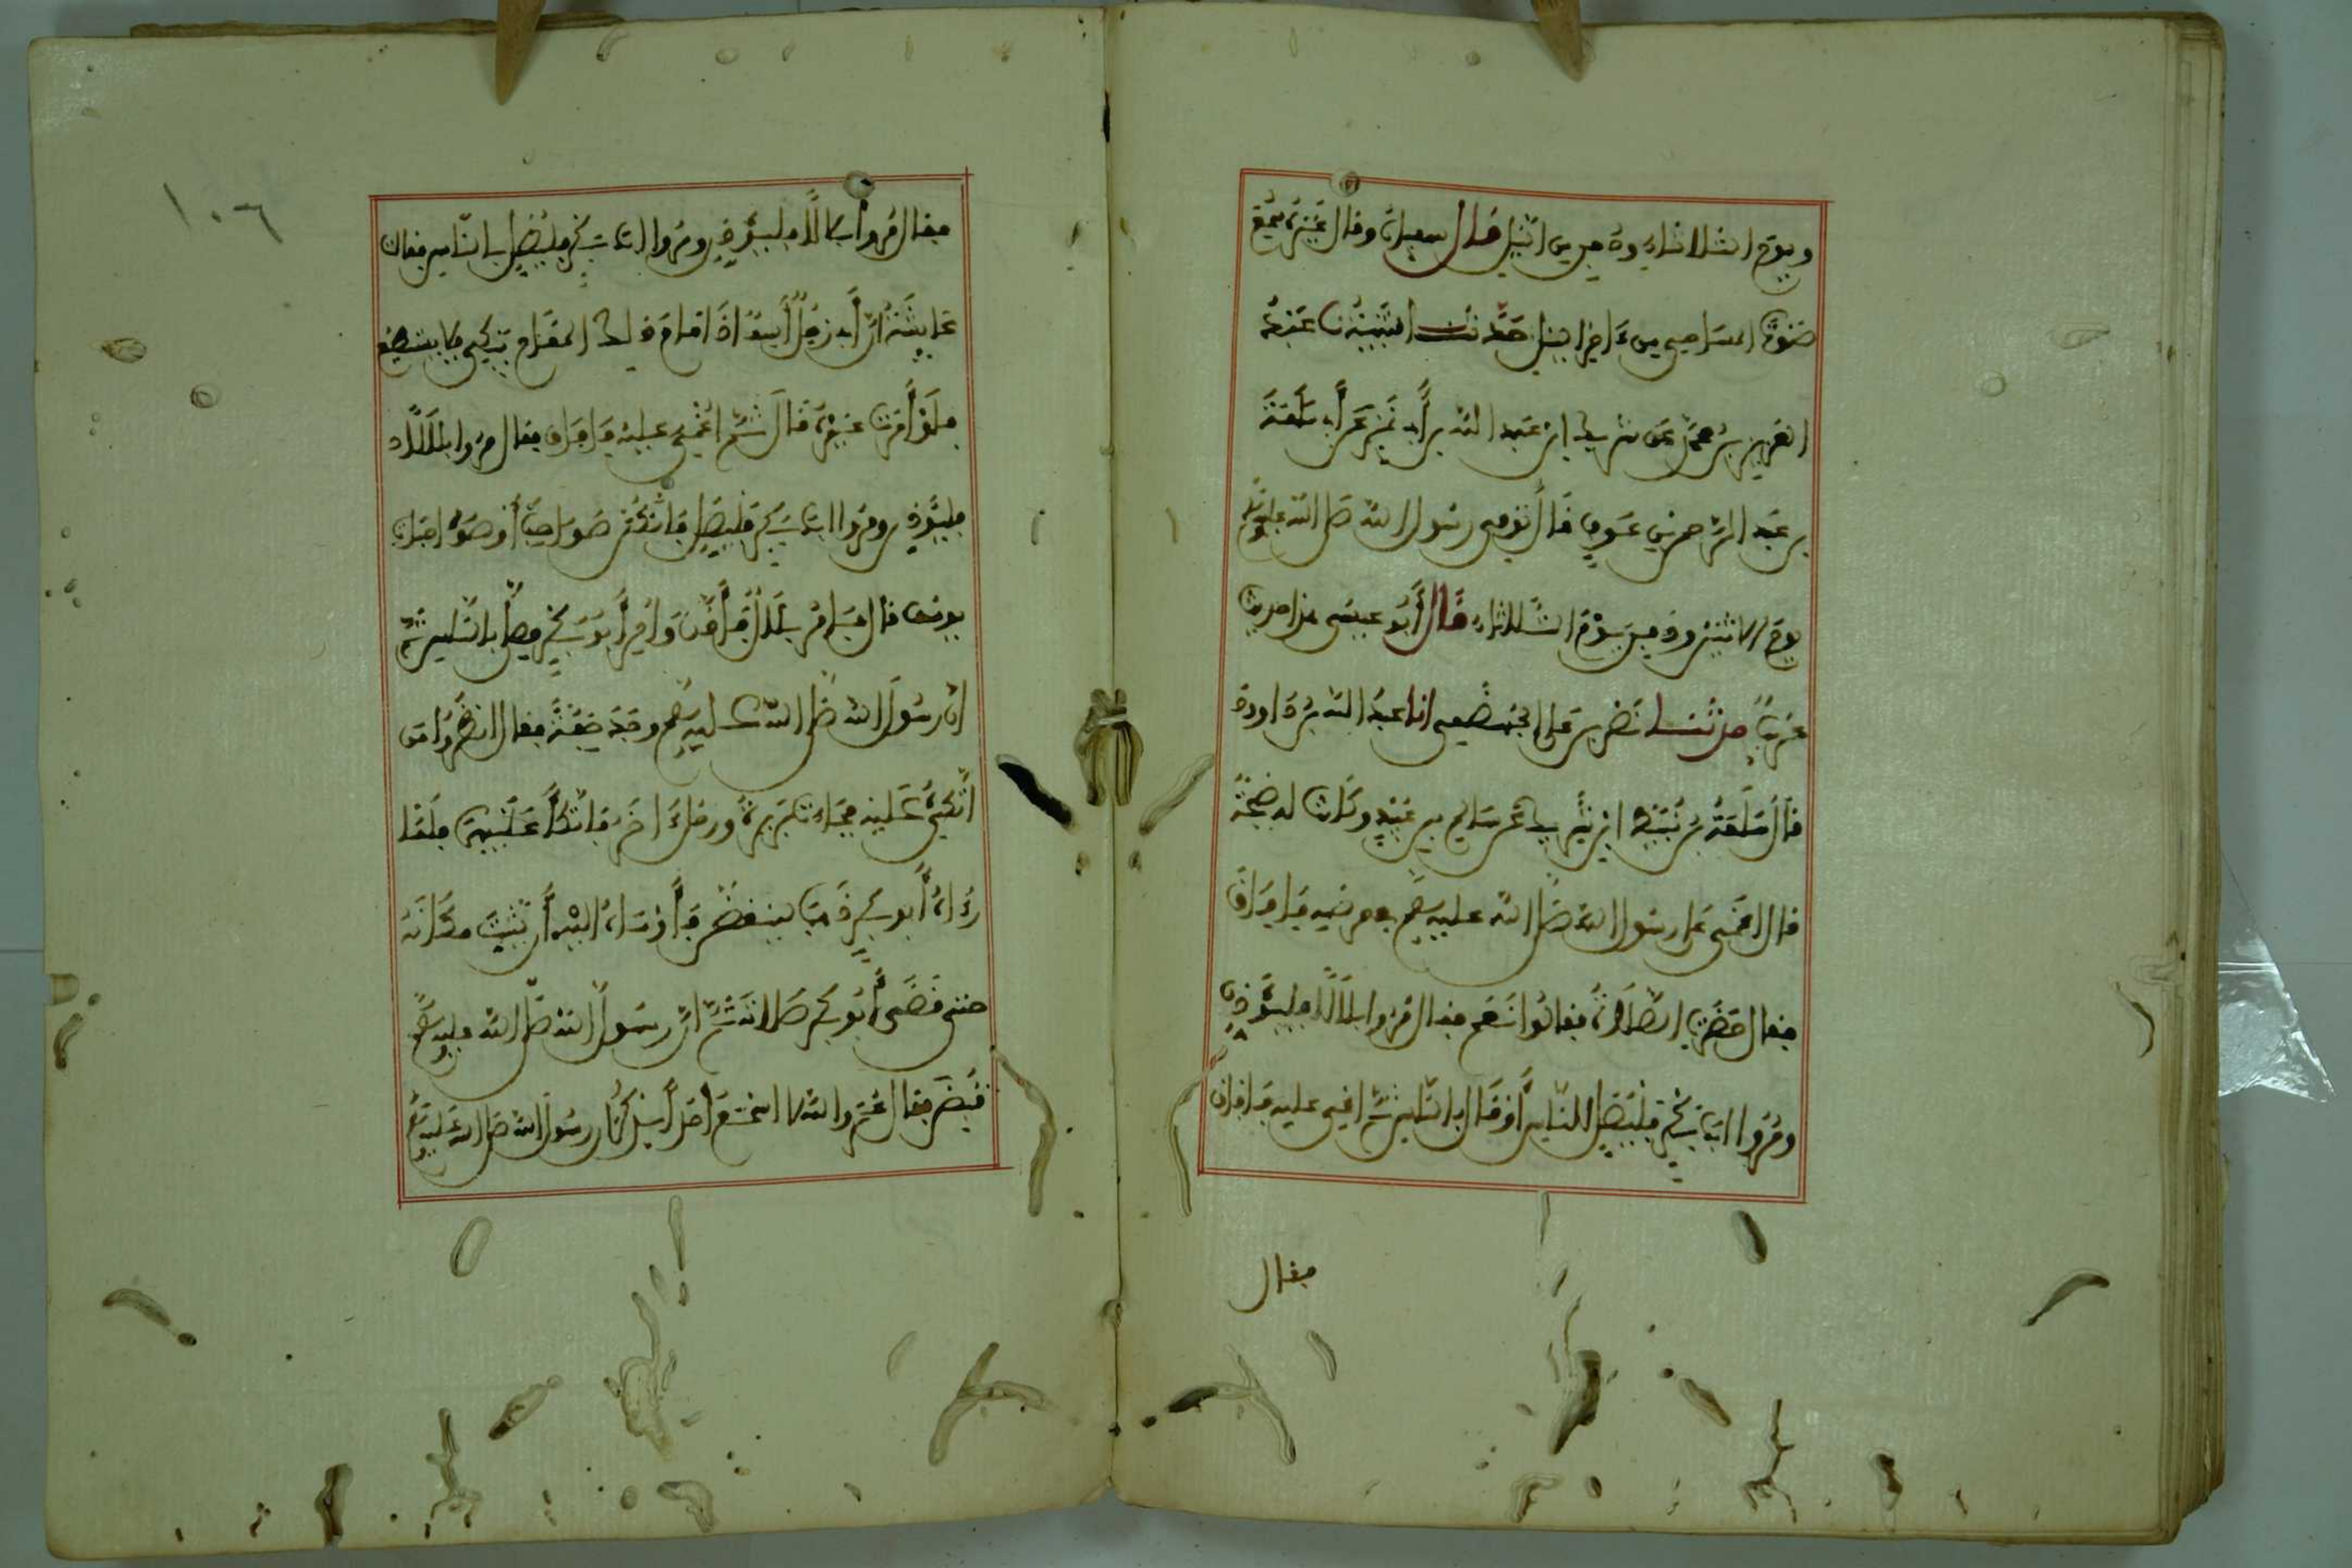 ويوم الثلاثاء ودفن من الليل قال سفيان وقال غيره سمع
صوت المساحي من ءاخر اليل حدثنا قتيبة نا عبد
العزيز بن محمد عن شريك ابن عبد الله بن أبي نمر عن أبي سلمة
بن عبد الرحمن بن عوف قال توفي رسول الله صلى الله عليه وسلم
يوم الاثنين ودفن يوم الثلاثاء قال أبو عيسى هذا حديث
غريب حدثنا نصر بن علي الجهضمي انا عبد الله بن داود
قال سلمة بن نبيط عن سالم بن عبيد وكانت له صحبة
قال اغمي على رسول الله صلى الله عليه وسلم في مرضه فافاق
فقال حضرت الصلاة فقالوا نعم فقال مروا بلالا فليؤذن
ومروا ابا بكر فليصل للناس أو قال بالناس ثم اغمي عليه فافاق
فقال
١٠٦
فقال مروا بلالا فليؤذن ومروا ابا بكر فليصل بالناس فقالت
عايشة ان أبي رجل أسيف اذا قام ذلك المقام بكى فلا يستطيع
فلو أمرت غيره قال ثم اغمي عليه فافاق فقال مروا بلالا
فليؤذن ومروا ابا بكر فليصل فانكن صواحب أو صواحبات
يوسف قال فامر بلال فأذن وأمر أبو بكر فصلى بالناس ثم
ان رسول الله صلى الله عليه وسلم وجد خفة فقال انظروا من
أتكئ عليه فجاءت بريرة ورجل ءاخر فاتكأ عليهما فلما
رءاه أبو بكر ذهب لينكص فأومأ اليه أن يثبت مكانه
حتى قضى أبو بكر صلاته ثم ان رسول الله صلى الله عليه وسلم
قبض فقال عمر والله لا اسمع احدا يذكر أن رسول الله صلى الله عليه وسلم